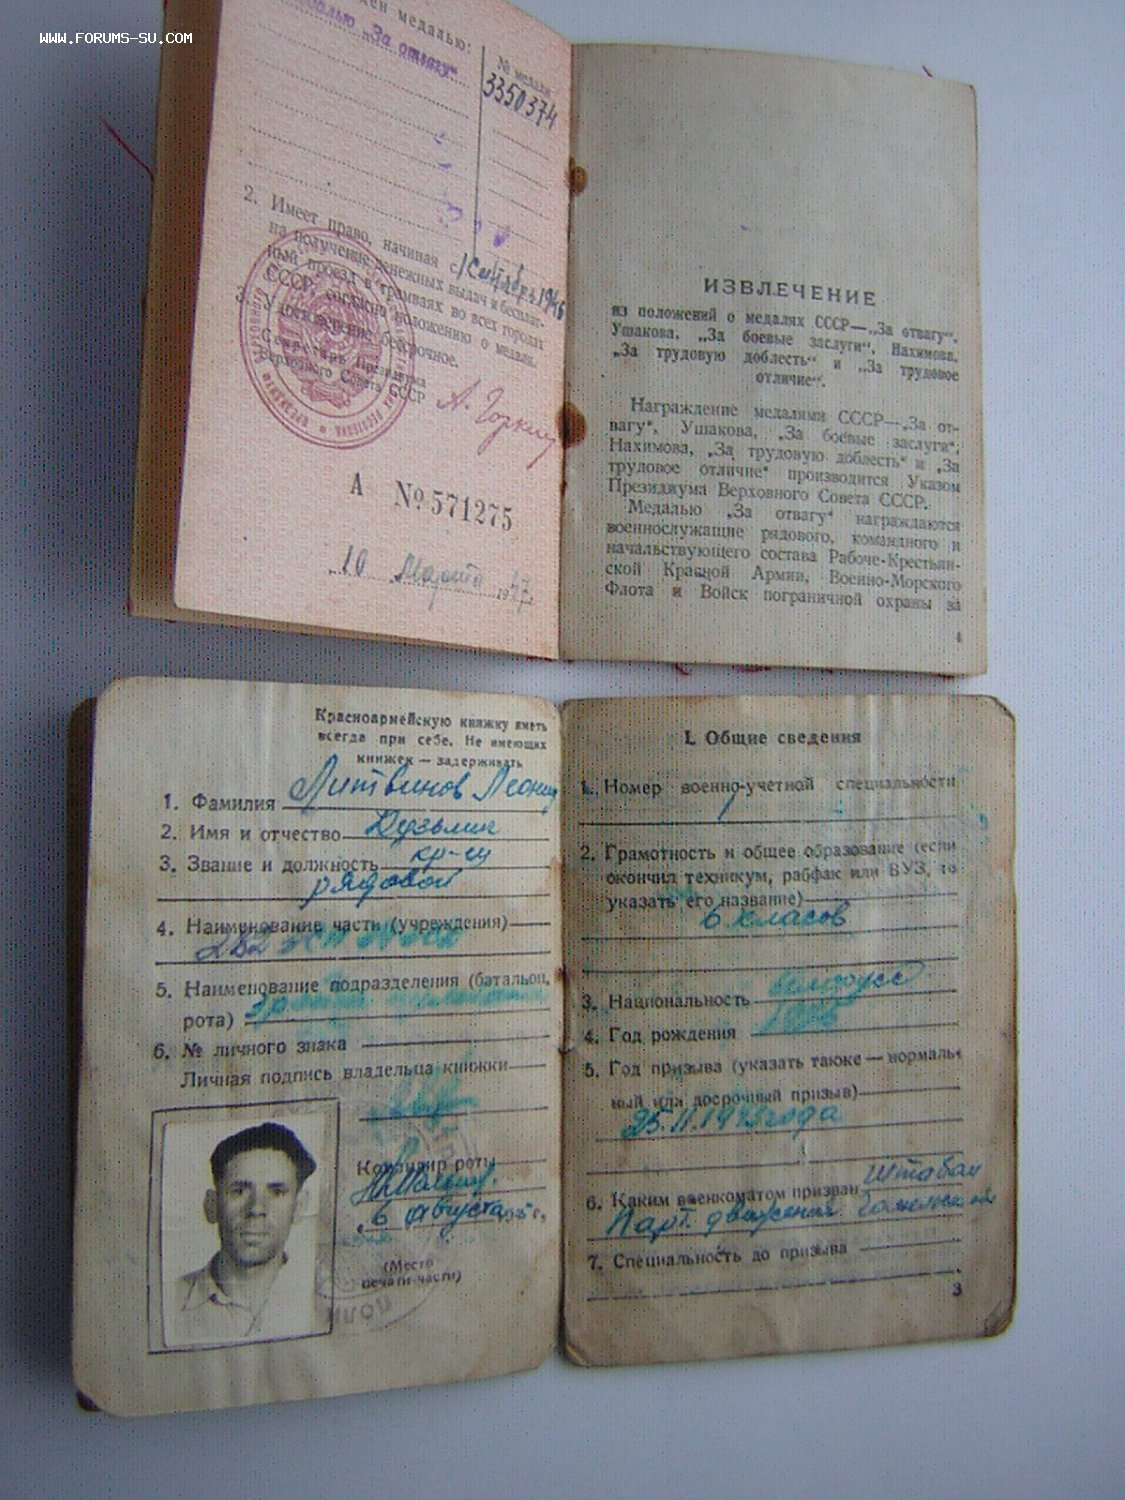 WWW.FORUMS-SU.COM
медалью:
„За отвагу“
№ медали
3350374
2. Имеет право, начиная с 1 Сентября 1946
на получение денежных выдач и бесплат-
ный проезд в трамваях во всех городах
СССР, согласно положению о медали.
3. Удостоверение бессрочное.
Секретарь Президиума
Верховного Совета СССР
А. Горкин
А № 571275
10 Марта 1947
ИЗВЛЕЧЕНИЕ
из положений о медалях СССР—„За отвагу“,
Ушакова, „За боевые заслуги“, Нахимова,
„За трудовую доблесть“ и „За трудовое
отличие“.
Награждение медалями СССР—„За от-
вагу“, Ушакова, „За боевые заслуги“,
Нахимова, „За трудовую доблесть“ и „За
трудовое отличие“ производится Указом
Президиума Верховного Совета СССР.
Медалью „За отвагу“ награждаются
военнослужащие рядового, командного и
начальствующего состава Рабоче-Крестьян-
ской Красной Армии, Военно-Морского
Флота и Войск пограничной охраны за
4
Красноармейскую книжку иметь
всегда при себе. Не имеющих
книжек — задерживать
1. Фамилия Литвинов Леонид
2. Имя и отчество Кузьмич
3. Звание и должность кр-ец
рядовой
4. Наименование части (учреждения)
5. Наименование подразделения (батальон,
рота)
6. № личного знака
Личная подпись владельца книжки
Командир роты
„6 Августа
(Место
печати части)
I. Общие сведения
1. Номер военно-учетной специальности
2. Грамотность и общее образование (если
окончил техникум, рабфак или ВУЗ, то
указать его название)
6 класов
3. Национальность белорусс
4. Год рождения
5. Год призыва (указать также — нормаль-
ный или досрочный призыв)
25.11.1943 года
6. Каким военкоматом призван Штабом
Парт. движения Гомельской
7. Специальность до призыва
3